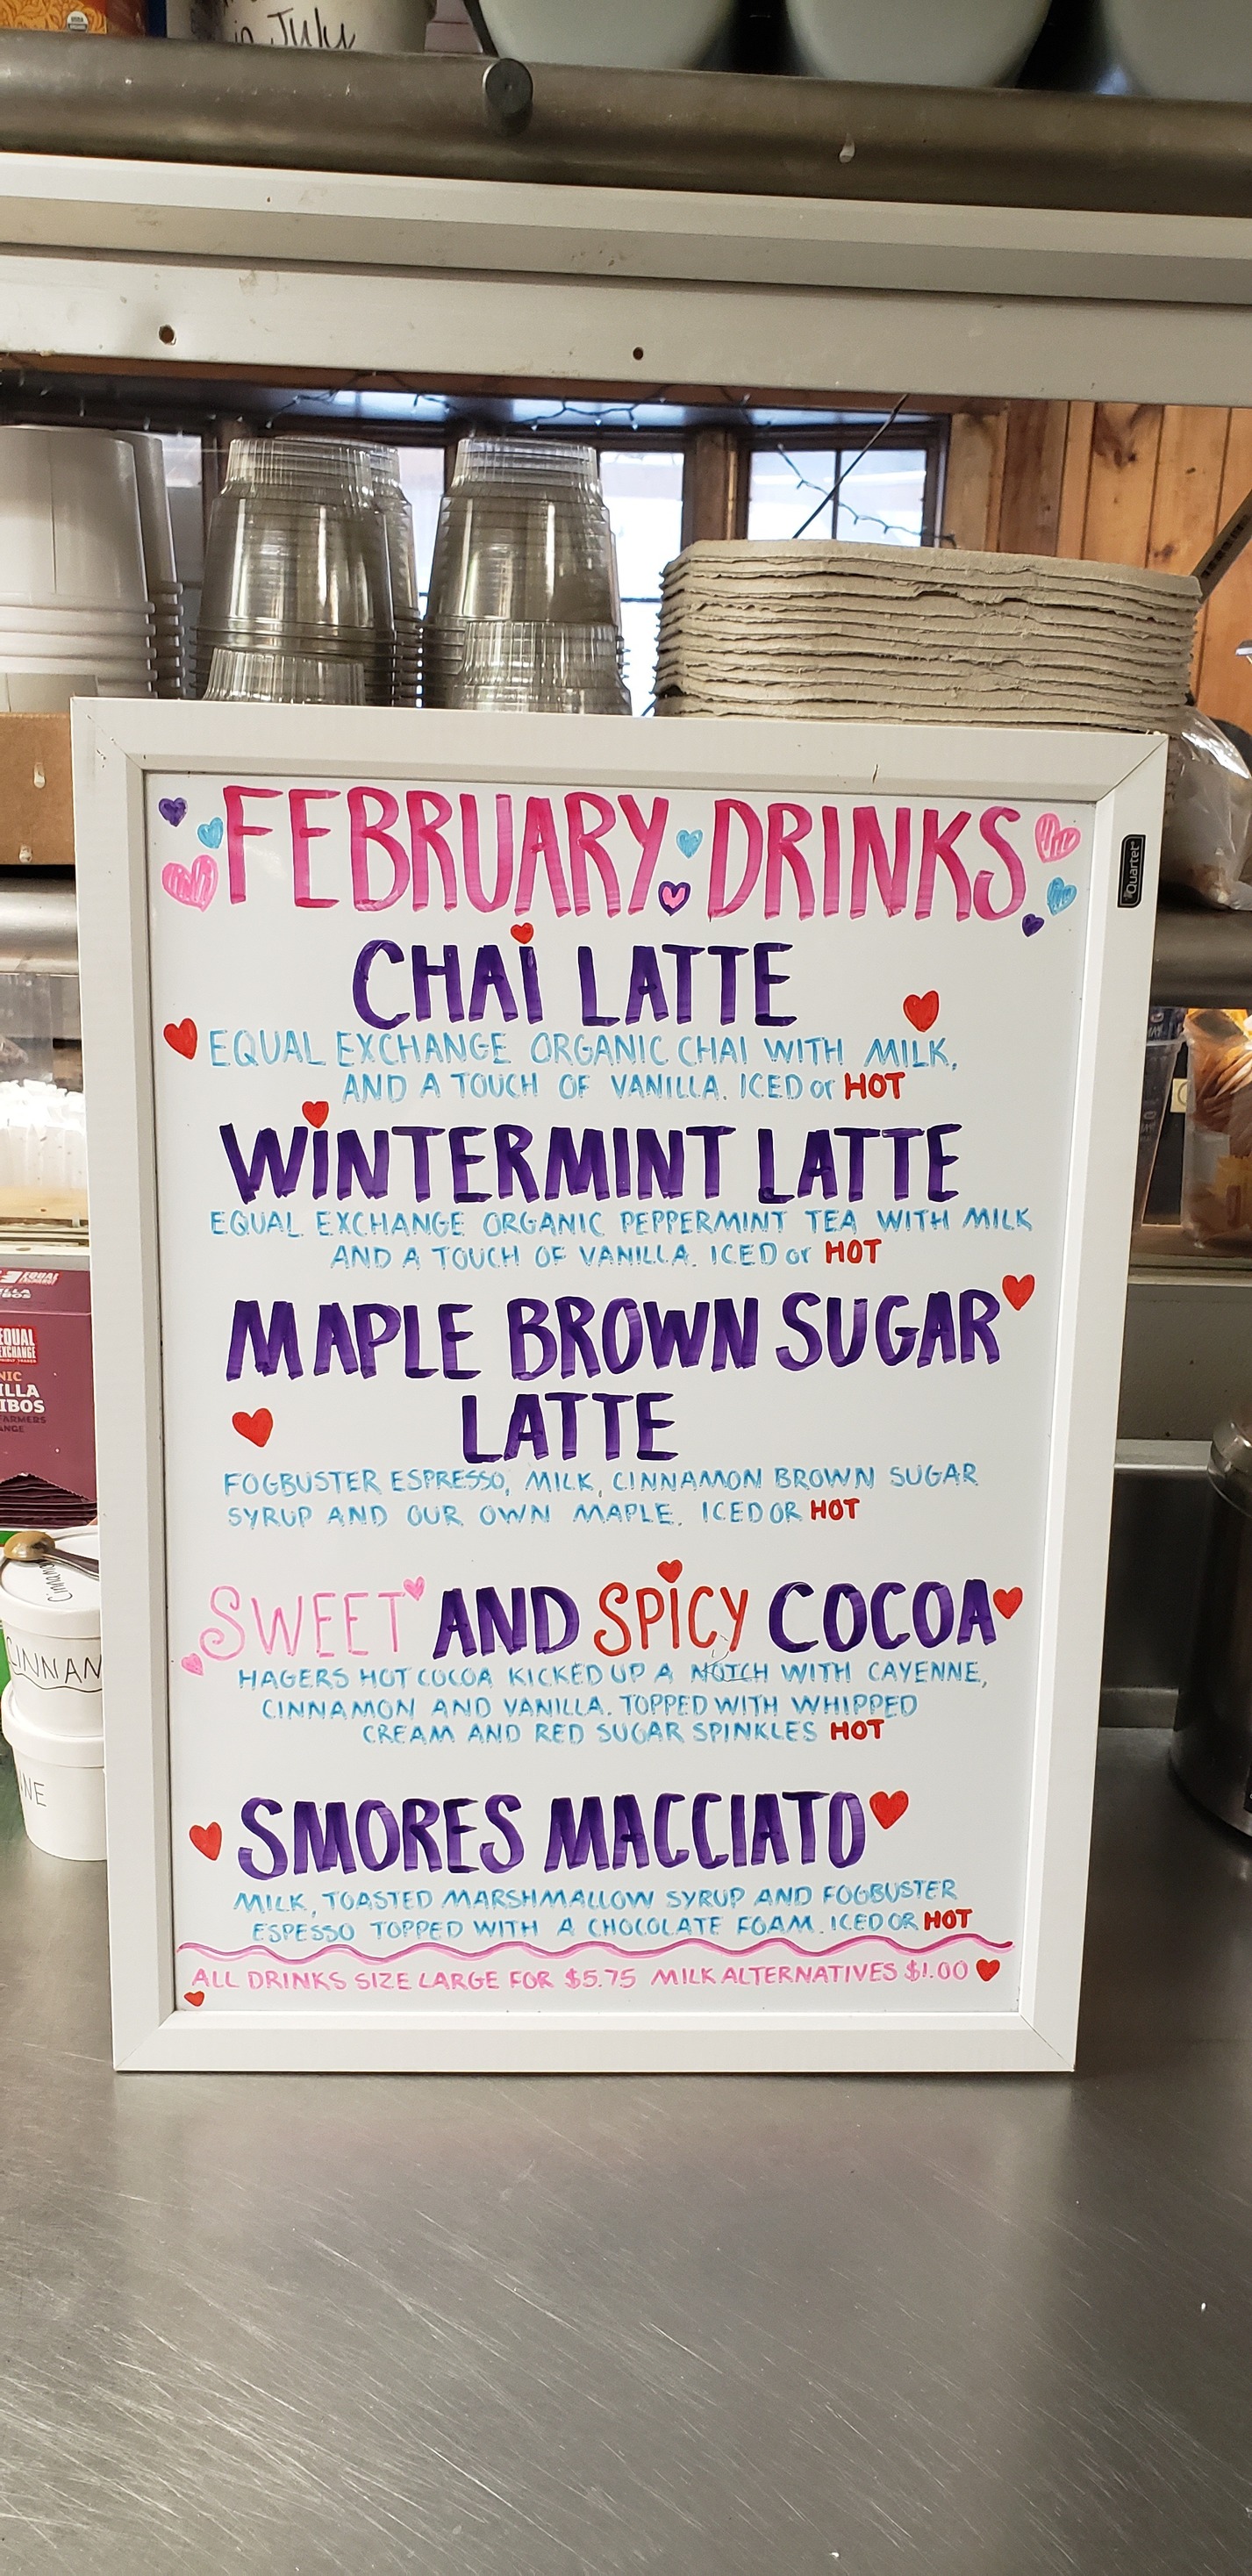 in July
FEBRUARY DRINKS
CHAI LATTE
EQUAL EXCHANGE ORGANIC CHAI WITH MILK,
AND A TOUCH OF VANILLA. ICED or HOT
WINTERMINT LATTE
EQUAL EXCHANGE ORGANIC PEPPERMINT TEA WITH MILK
AND A TOUCH OF VANILLA. ICED or HOT
MAPLE BROWN SUGAR
LATTE
FOGBUSTER ESPRESSO, MILK, CINNAMON BROWN SUGAR
SYRUP AND OUR OWN MAPLE. ICED OR HOT
SWEET AND SPICY COCOA
HAGERS HOT COCOA KICKED UP A NOTCH WITH CAYENNE,
CINNAMON AND VANILLA. TOPPED WITH WHIPPED
CREAM AND RED SUGAR SPINKLES HOT
SMORES MACCIATO
MILK, TOASTED MARSHMALLOW SYRUP AND FOGBUSTER
ESPESSO TOPPED WITH A CHOCOLATE FOAM. ICED OR HOT
ALL DRINKS SIZE LARGE FOR $5.75 MILK ALTERNATIVES $1.00
Quartet
EQUAL
EXCHANGE
NIC
ILLA
IBOS
FARMERS
ANGE
CINNAN
NE